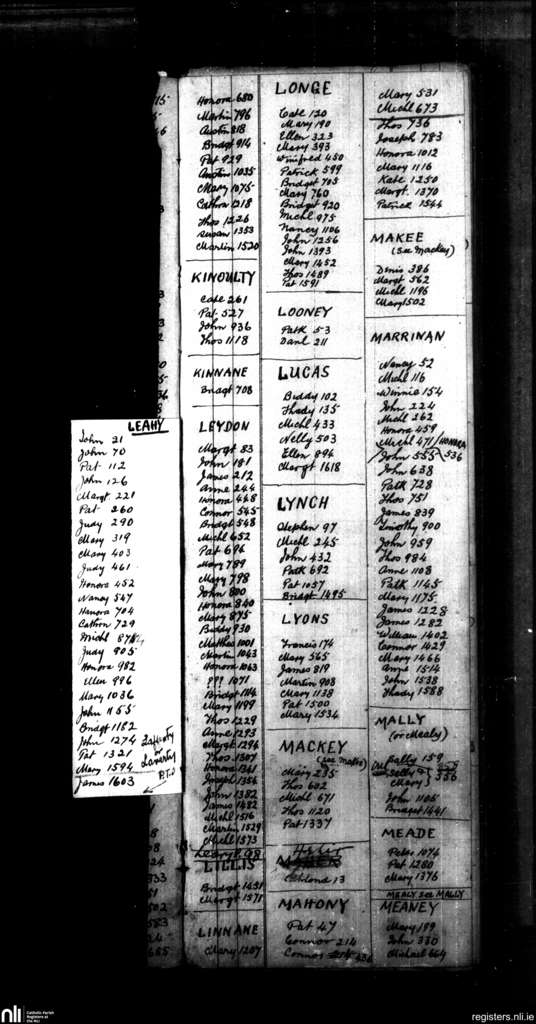 LEAHY
John 21
John 70
Pat 112
John 126
Margt 221
Pat 260
Judy 290
Mary 319
Mary 403
Judy 461
Honora 452
Nancy 547
Honora 704
Cathrn 729
Michl
Judy 905
Honora 982
Ellen 996
Mary 1036
John 1155
Bridgt 1182
John 1274
Pat 1321
Mary 1594
James 1603
Lafferty
or
Laverty
P.T.O
Honora 680
Martin 796
Austin 818
Bridgt 914
Pat 929
Austin 1035
Mary 1075
Cathrn 1218
Thos 1226
Susan 1353
Martin 1520
KINOULTY
Cate 261
Pat 527
John 936
Thos 1118
KINNANE
Bridgt 708
LEYDON
Margt 83
John 181
James 212
Anne 244
Honora 448
Connor 545
Bridgt 548
Michl 652
Pat 694
Mary 789
Mary 798
John 800
Honora 840
Mary 875
Biddy 930
Matthew 1001
Martin 1043
Honora 1063
??? 1071
Bridgt 1114
Mary 1199
Thos 1229
Anne 1293
Margt 1294
Thos 1307
Honora 1341
Joseph 1354
John 1382
James 1482
Michl 1516
Martin 1529
Michl 1573
LILLIS
Bridgt 1431
Margt 1571
LINNANE
Mary 1207
LONGE
Cate 120
Mary 190
Ellen 323
Mary 393
Winifred 450
Patrick 599
Bridget 705
Mary 760
Bridget 920
Michl 975
Nancy 1106
John 1256
John 1393
Mary 1452
Thos 1489
Pat 1591
LOONEY
Patk 53
Danl 211
LUCAS
Biddy 102
Thady 135
Michl 433
Nelly 503
Ellen 894
Margt 1618
LYNCH
Stephen 97
Michl 245
John 432
Patk 692
Pat 1057
Bridgt 1495
LYONS
Francis 174
Mary 565
James 819
Martin 908
Mary 1138
Pat 1500
Mary 1534
MACKEY
(see Makee)
Mary 235
Thos 602
Michl 671
Thos 1120
Pat 1337
MAHONY
Pat 47
Connor 214
Connor
Mary 531
Michl 673
Thos 736
Joseph 783
Honora 1012
Mary 1116
Kate 1250
Margt. 1370
Patrick 1544
MAKEE
(See Mackey)
Denis 386
Margt 562
Michl 1196
Mary 1502
MARRINAN
Nancy 52
Michl 116
Winnie 154
John 224
Michl 262
Honora 459
Michl 471 / HONORA
John 555 536
John 638
Patk 728
Thos 751
James 839
Timothy 900
John 959
Thos 984
Anne 1108
Patk 1145
Mary 1175
James 1228
James 1282
William 1402
Connor 1429
Mary 1466
Anne 1514
John 1538
Thady 1588
MALLY
(or Mealy)
Sally 159
Mary
John 1105
Bridget 1441
MEADE
Peter 1074
Pat 1280
Mary 1376
MEALY see MALLY
MEANEY
Mary 199
John 330
Michael 664
nli
Catholic Parish
Registers at
the NLI
registers.nli.ie